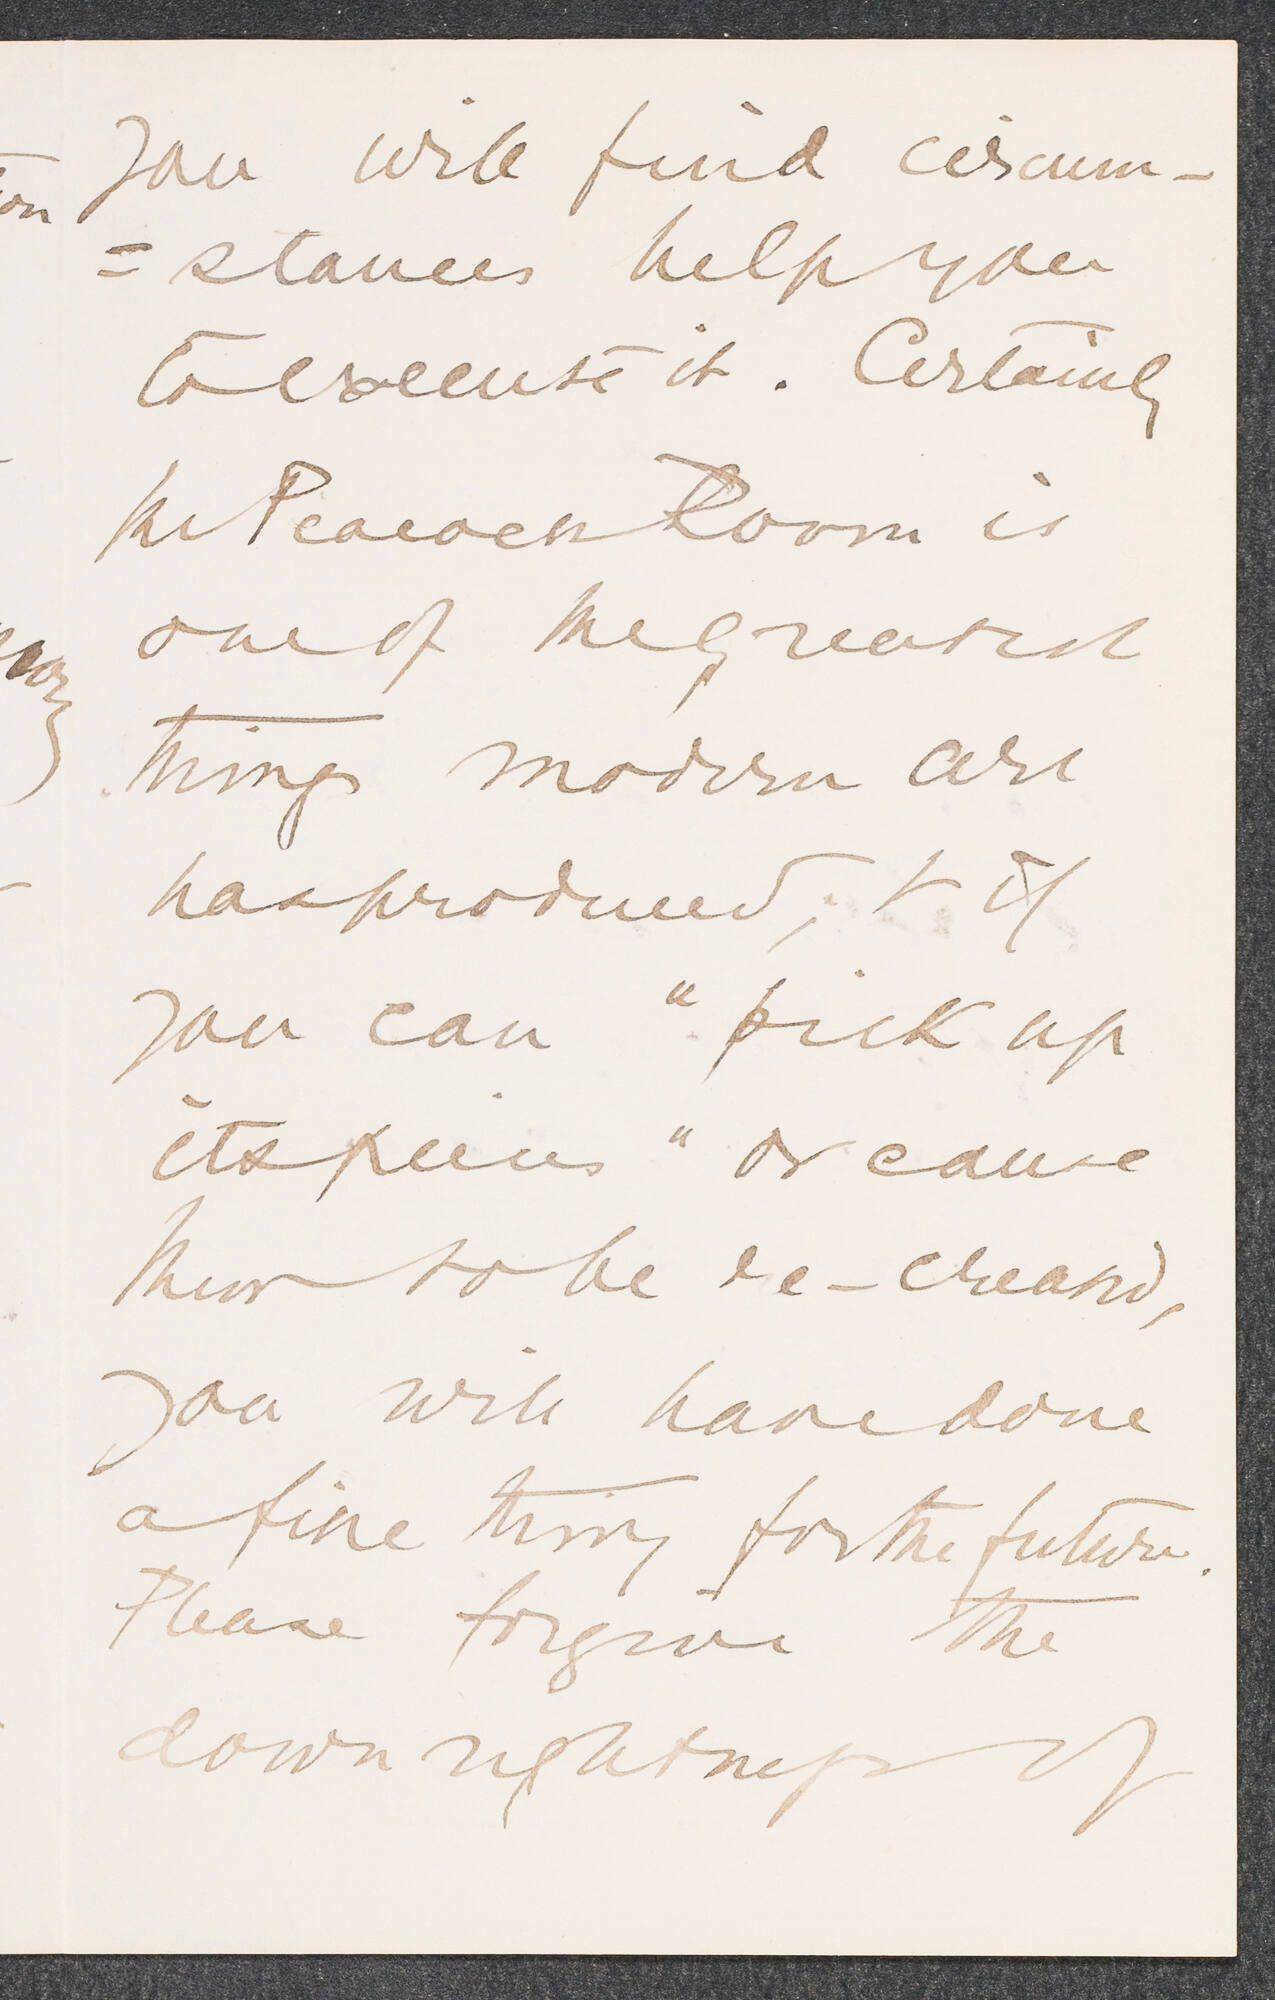 you will find circum-
=stances help you
to execute it. Certainly
the Peacock Room is
one of the greatest
things modern art
has produced, & if
you can "pick up
its pieces" or cause
them to be re-created,
you will have done
a fine thing for the future.
Please forgive the
downrightness of